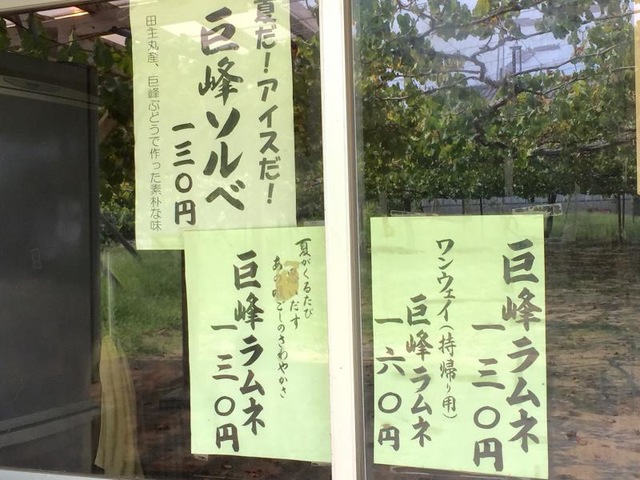 夏だ！アイスだ！
巨峰ソルベ
一三〇円
田主丸産、巨峰ぶどうで作った素朴な味
夏がくるたび
だす
ごしのさわやかさ
巨峰ラムネ
一三〇円
巨峰ラムネ
一三〇円
ワンウェイ（持帰り用）
巨峰ラムネ
一六〇円